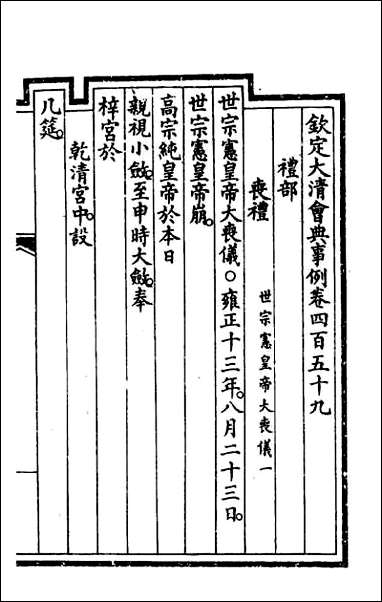 欽定大清會典事例卷四百五十九
禮部
喪禮 世宗憲皇帝大喪儀一
世宗憲皇帝大喪儀○雍正十三年。八月二十三日。
世宗憲皇帝崩。
高宗純皇帝於本日
親視小斂。至申時大斂。奉
梓宮於
乾清宮中。設
几筵。